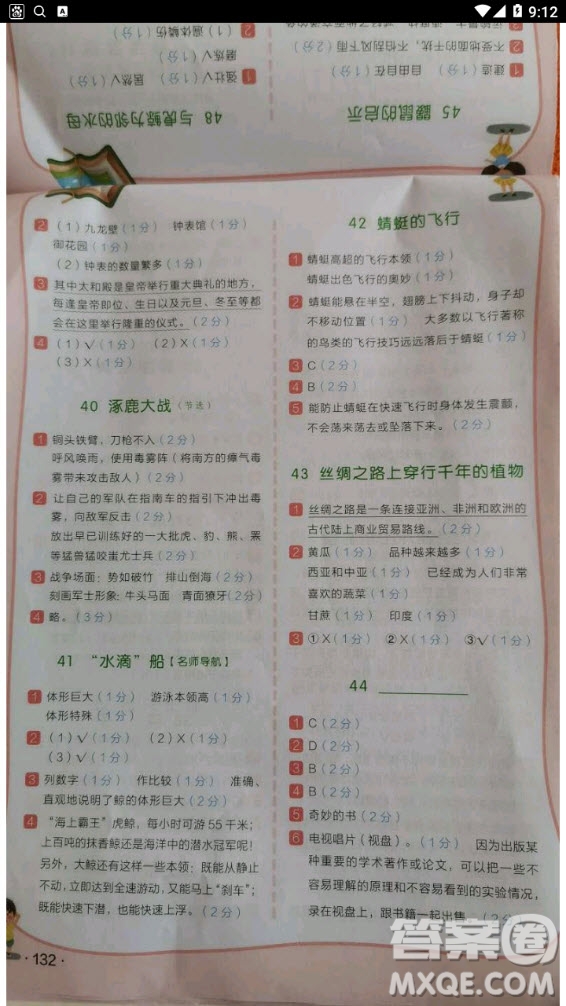 9:12
48 与虎鲸为邻的水母
45 鼹鼠的启示
1 强壮√ 居然√（1分）
磨炼√（1分）
2（1）遍体鳞伤（1分）
1 建造（1分） 自由自在（1分）
2 不受地面的干扰，不怕刮风下雨（2分）
2（1）九龙壁（1分） 钟表馆（1分）
御花园（1分）
（2）钟表的数量繁多（1分）
3 其中太和殿是皇帝举行重大典礼的地方，
每逢皇帝即位、生日以及元旦、冬至等都
会在这里举行隆重的仪式。（2分）
4（1）√（1分）（2）X（1分）
（3）X（1分）
40 涿鹿大战（节选）
1 铜头铁臂、刀枪不入（2分）
呼风唤雨，使用毒雾阵（将南方的瘴气毒
雾带来攻击敌人）（2分）
2 让自己的军队在指南车的指引下冲出毒
雾，向敌军反击（2分）
放出早已训练好的一大批虎、豹、熊、罴
等猛兽猛咬蚩尤士兵（2分）
3 战争场面：势如破竹 排山倒海（2分）
刻画军士形象：牛头马面 青面獠牙（2分）
4 略。（3分）
41 “水滴”船【名师导航】
1 体形巨大（1分） 游泳本领高（1分）
体形特殊（1分）
2（1）√（1分）（2）X（1分）
（3）√（1分）
3 列数字（1分） 作比较（1分） 准确、
直观地说明了鲸的体形巨大（2分）
4 “海上霸王”虎鲸，每小时可游55千米；
上百吨的抹香鲸还是海洋中的潜水冠军呢！
另外，大鲸还有这样一些本领：能从静止
不动，立即达到全速游动，又能马上“刹车”；
既能快速下潜，也能快速上浮。（2分）
·132·
42 蜻蜓的飞行
1 蜻蜓高超的飞行本领（1分）
蜻蜓出色飞行的奥妙（1分）
2 蜻蜓能悬在半空，翅膀上下抖动，身子却
不移动位置（1分） 大多数以飞行著称
的鸟类的飞行技巧远远落后于蜻蜓（1分）
3 C（2分）
4 B（2分）
5 能防止蜻蜓在快速飞行时身体发生震颤，
不会荡来荡去或坠落下来。（2分）
43 丝绸之路上穿行千年的植物
1 丝绸之路是一条连接亚洲、非洲和欧洲的
古代陆上商业贸易路线。（2分）
2 黄瓜（1分） 品种越来越多（1分）
西亚和中亚（1分） 已经成为人们非常
喜欢的蔬菜（1分）
甘蔗（1分） 印度（1分）
3 ①X（1分） ②X（1分） ③√（1分）
44
1 C（2分）
2 D（2分）
3 B（2分）
4 B（2分）
5 奇妙的书（2分）
6 电视唱片（视盘）。（1分） 因为出版某
种重要的学术著作或论文，可以把一些不
容易理解的原理和不容易看到的实验情况，
录在视盘上，跟书籍一起出售。（2分）
答案圈
MXQE.COM